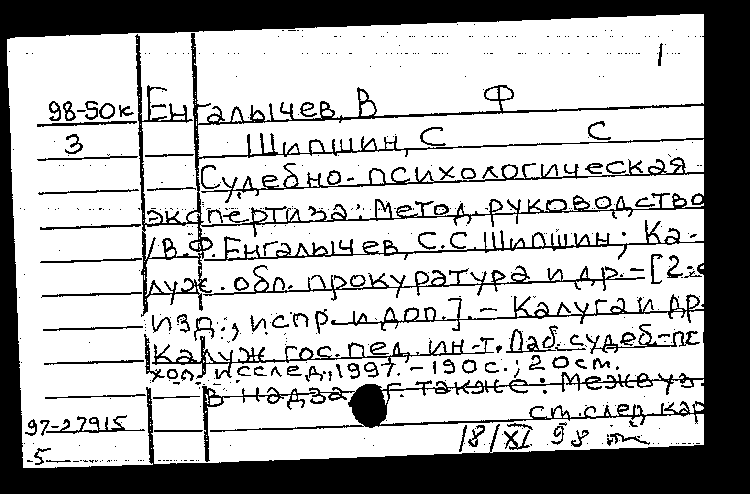 1
98-50к Енгалычев, В Ф
3 Шипшин, С С
Судебно-психологическая
экспертиза: Метод. руководство
/В.Ф. Енгалычев, С.С. Шипшин; Ка-
луж. обл. прокуратура и др. – [2-е
изд., испр. и доп.]. – Калуга и др.
Калуж. гос. пед. ин-т. Лаб. судеб.-пси
хол. исслед., 1997. – 190с.; 20см.
В надзаг. также: Межвуз.
97-27915 см.след кар
5 18/XI 98